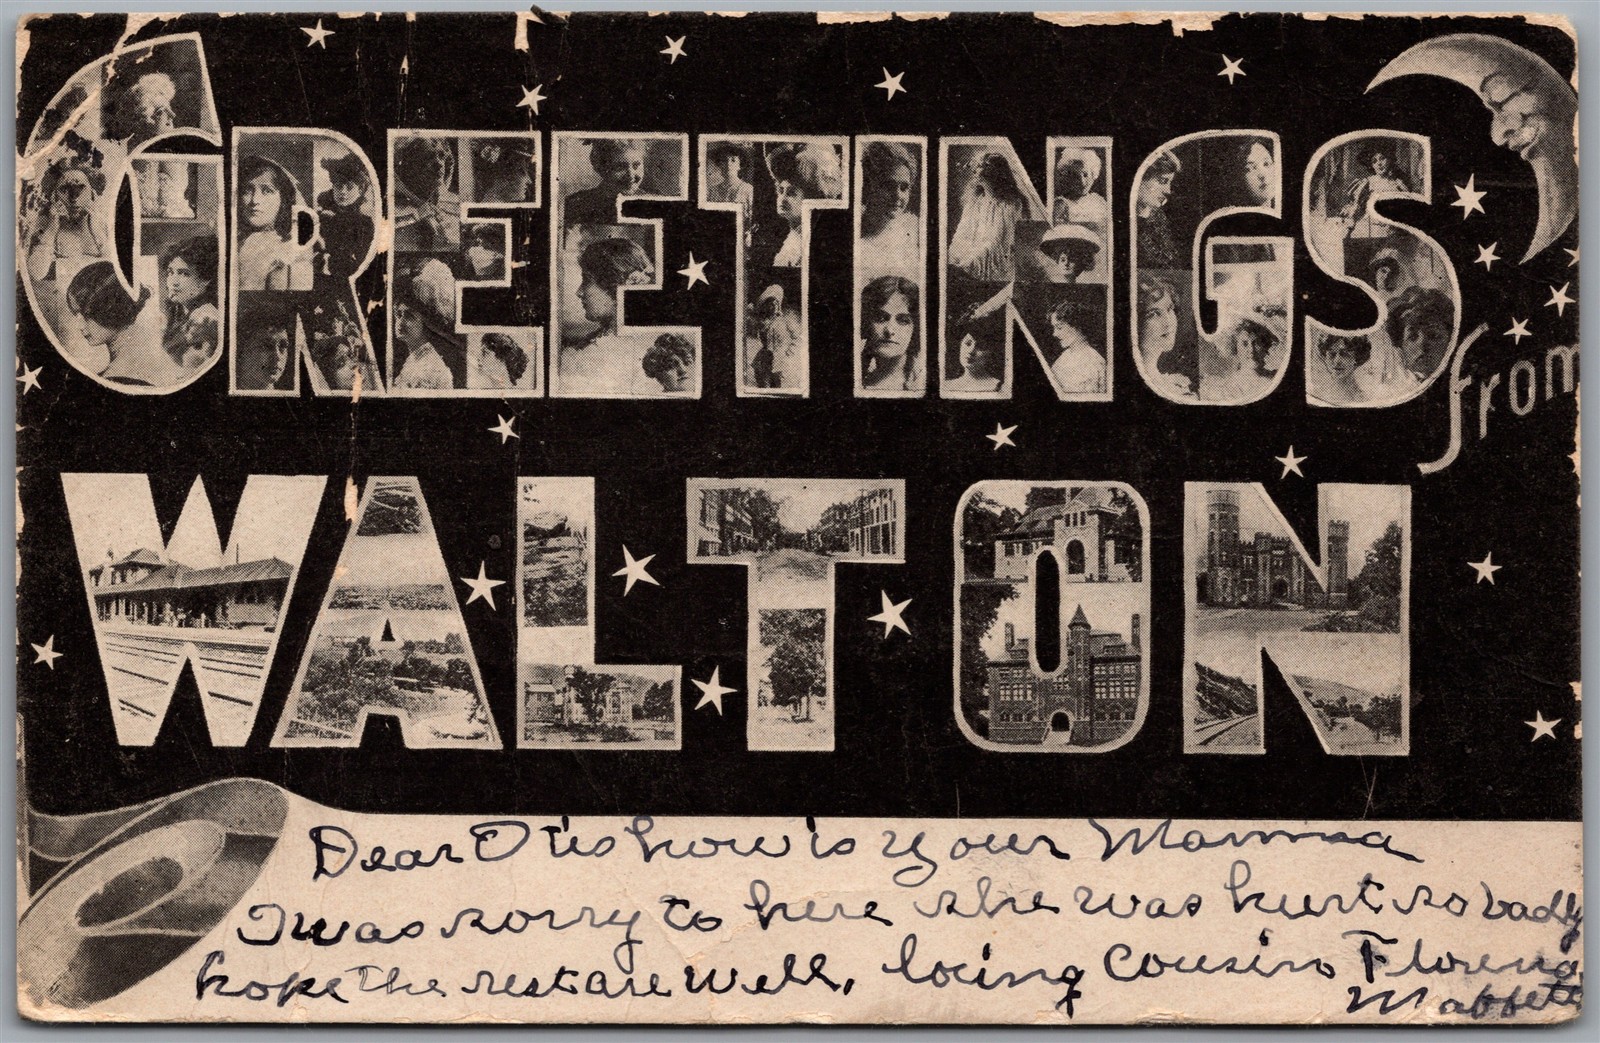 GREETINGS
from
WALTON
Dear Otis how is your Mamma
I was sorry to here she was hurt so badly
hope the rest are well, loving Cousin Florena
Maffett